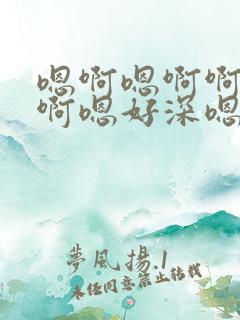 嗯啊嗯啊啊
啊嗯好深嗯
夢風揚.1
未经同意禁止转载